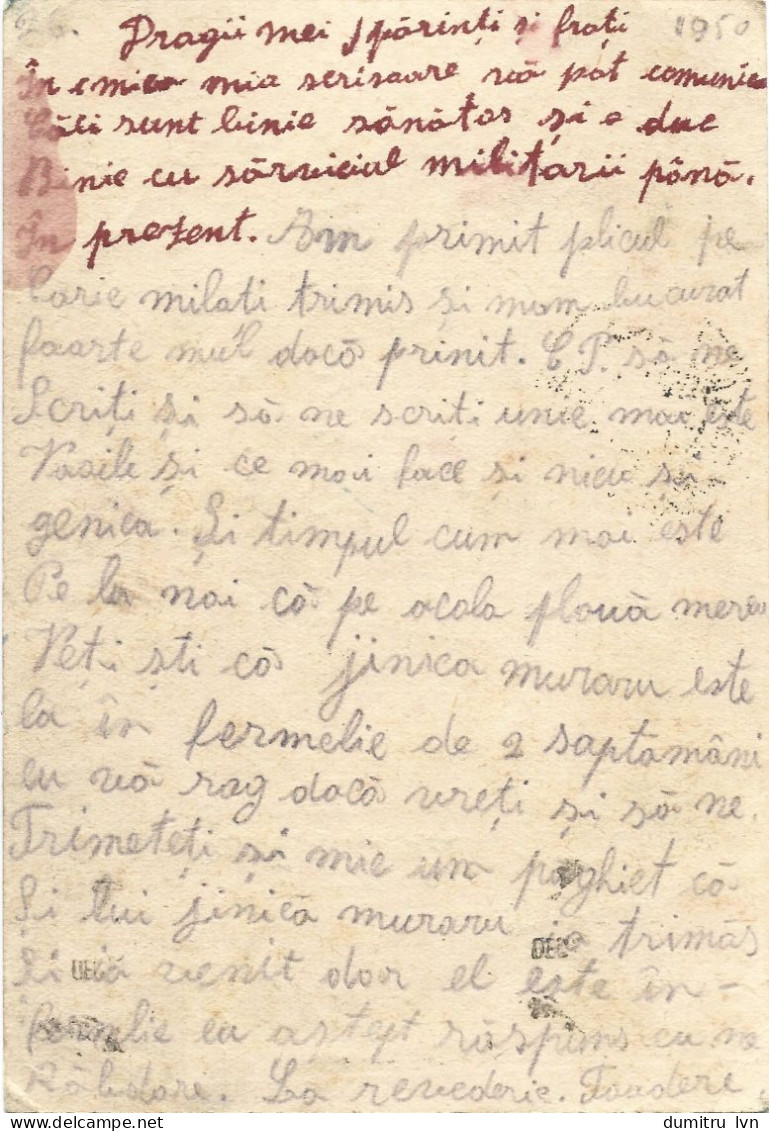 26. Dragii mei părinți și frați 1950
În mica mia scrisoare vă pot comunica
Căci sunt binie sănătos și o duc
Binie cu sărviciul militarii până.
În prezent. Am primit plicul pe
Carie milati trimis și mam bucurat
foarte mul dacă prinit. C P. să ne
Scriți și să ne scriți unie mai este
Vasile și ce mai face și nicu și
genica. Și timpul cum mai este
Pe la noi că pe acola plouă mereu
Veți ști că jinica muraru este
la în fermelie de 2 saptamâni
eu vă rag dacă vreți și să ne.
Trimeteți și mie un paghiet că
Și lui jinica muraru ia trimăs
Și ia venit doar el este în-
fermelie eu aștept răspuns cu ne
Răbdare. La revederie. Toadere.
DEC
DEC
dumitru lvn